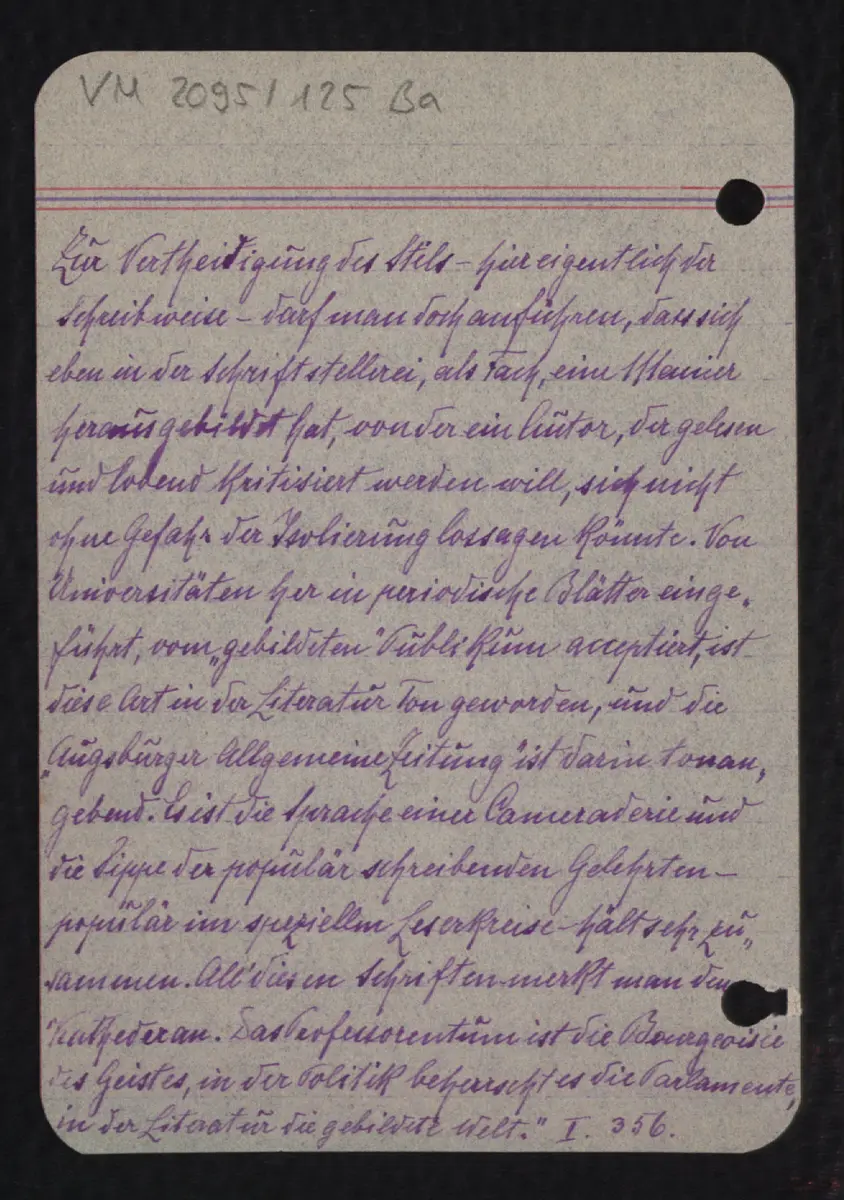 VM 2095/125 Ba
Zur Vertheidigung des Stils – hier eigentlich der
Schreibweise – darf man doch anführen, dass sich
eben in der Schriftstellerei, als Fach, eine Manier
herausgebildet hat, von der ein Autor, der gelesen
und lobend kritisiert werden will, sich nicht
ohne Gefahr der Isolierung lossagen könnte. Von
Universitäten her in periodische Blätter einge„
führt, vom „gebildeten" Publikum acceptiert, ist
diese Art in der Literatur Ton geworden, und die
„Augsburger Allgemeine Zeitung" ist darin tonan„
gebend. Es ist die Sprache einer Cameraderie und
die Sippe der populär schreibenden Gelehrten –
populär im speziellen Leserkreise – hält sehr zu„
sammen. All' diesen Schriften merkt man den
Katheder an. Das Professorentum ist die Bourgeoisie
des Geistes, in der Politik beherrscht es die Parlamente,
in der Literatur die gebildete Welt." I. 356.